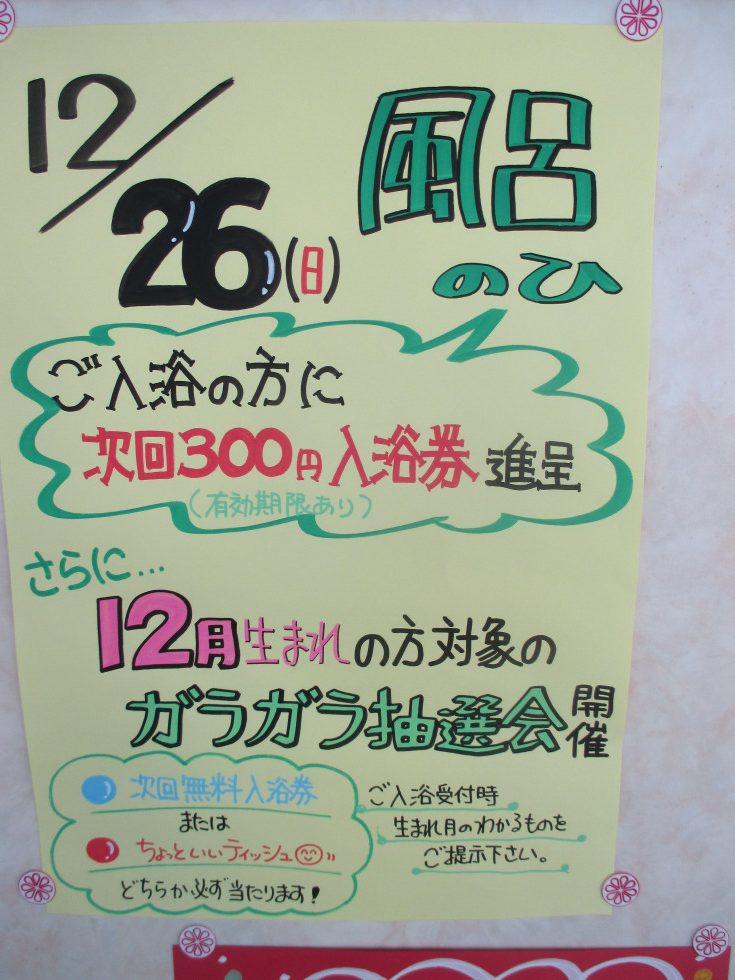 12/26(日)
風呂
のひ
ご入浴の方に
次回300円入浴券進呈
(有効期限あり)
さらに...
12月生まれの方対象の
ガラガラ抽選会開催
次回無料入浴券
または
ちょっといいティッシュ
どちらか必ず当たります!
ご入浴受付時
生まれ月のわかるものを
ご提示下さい。